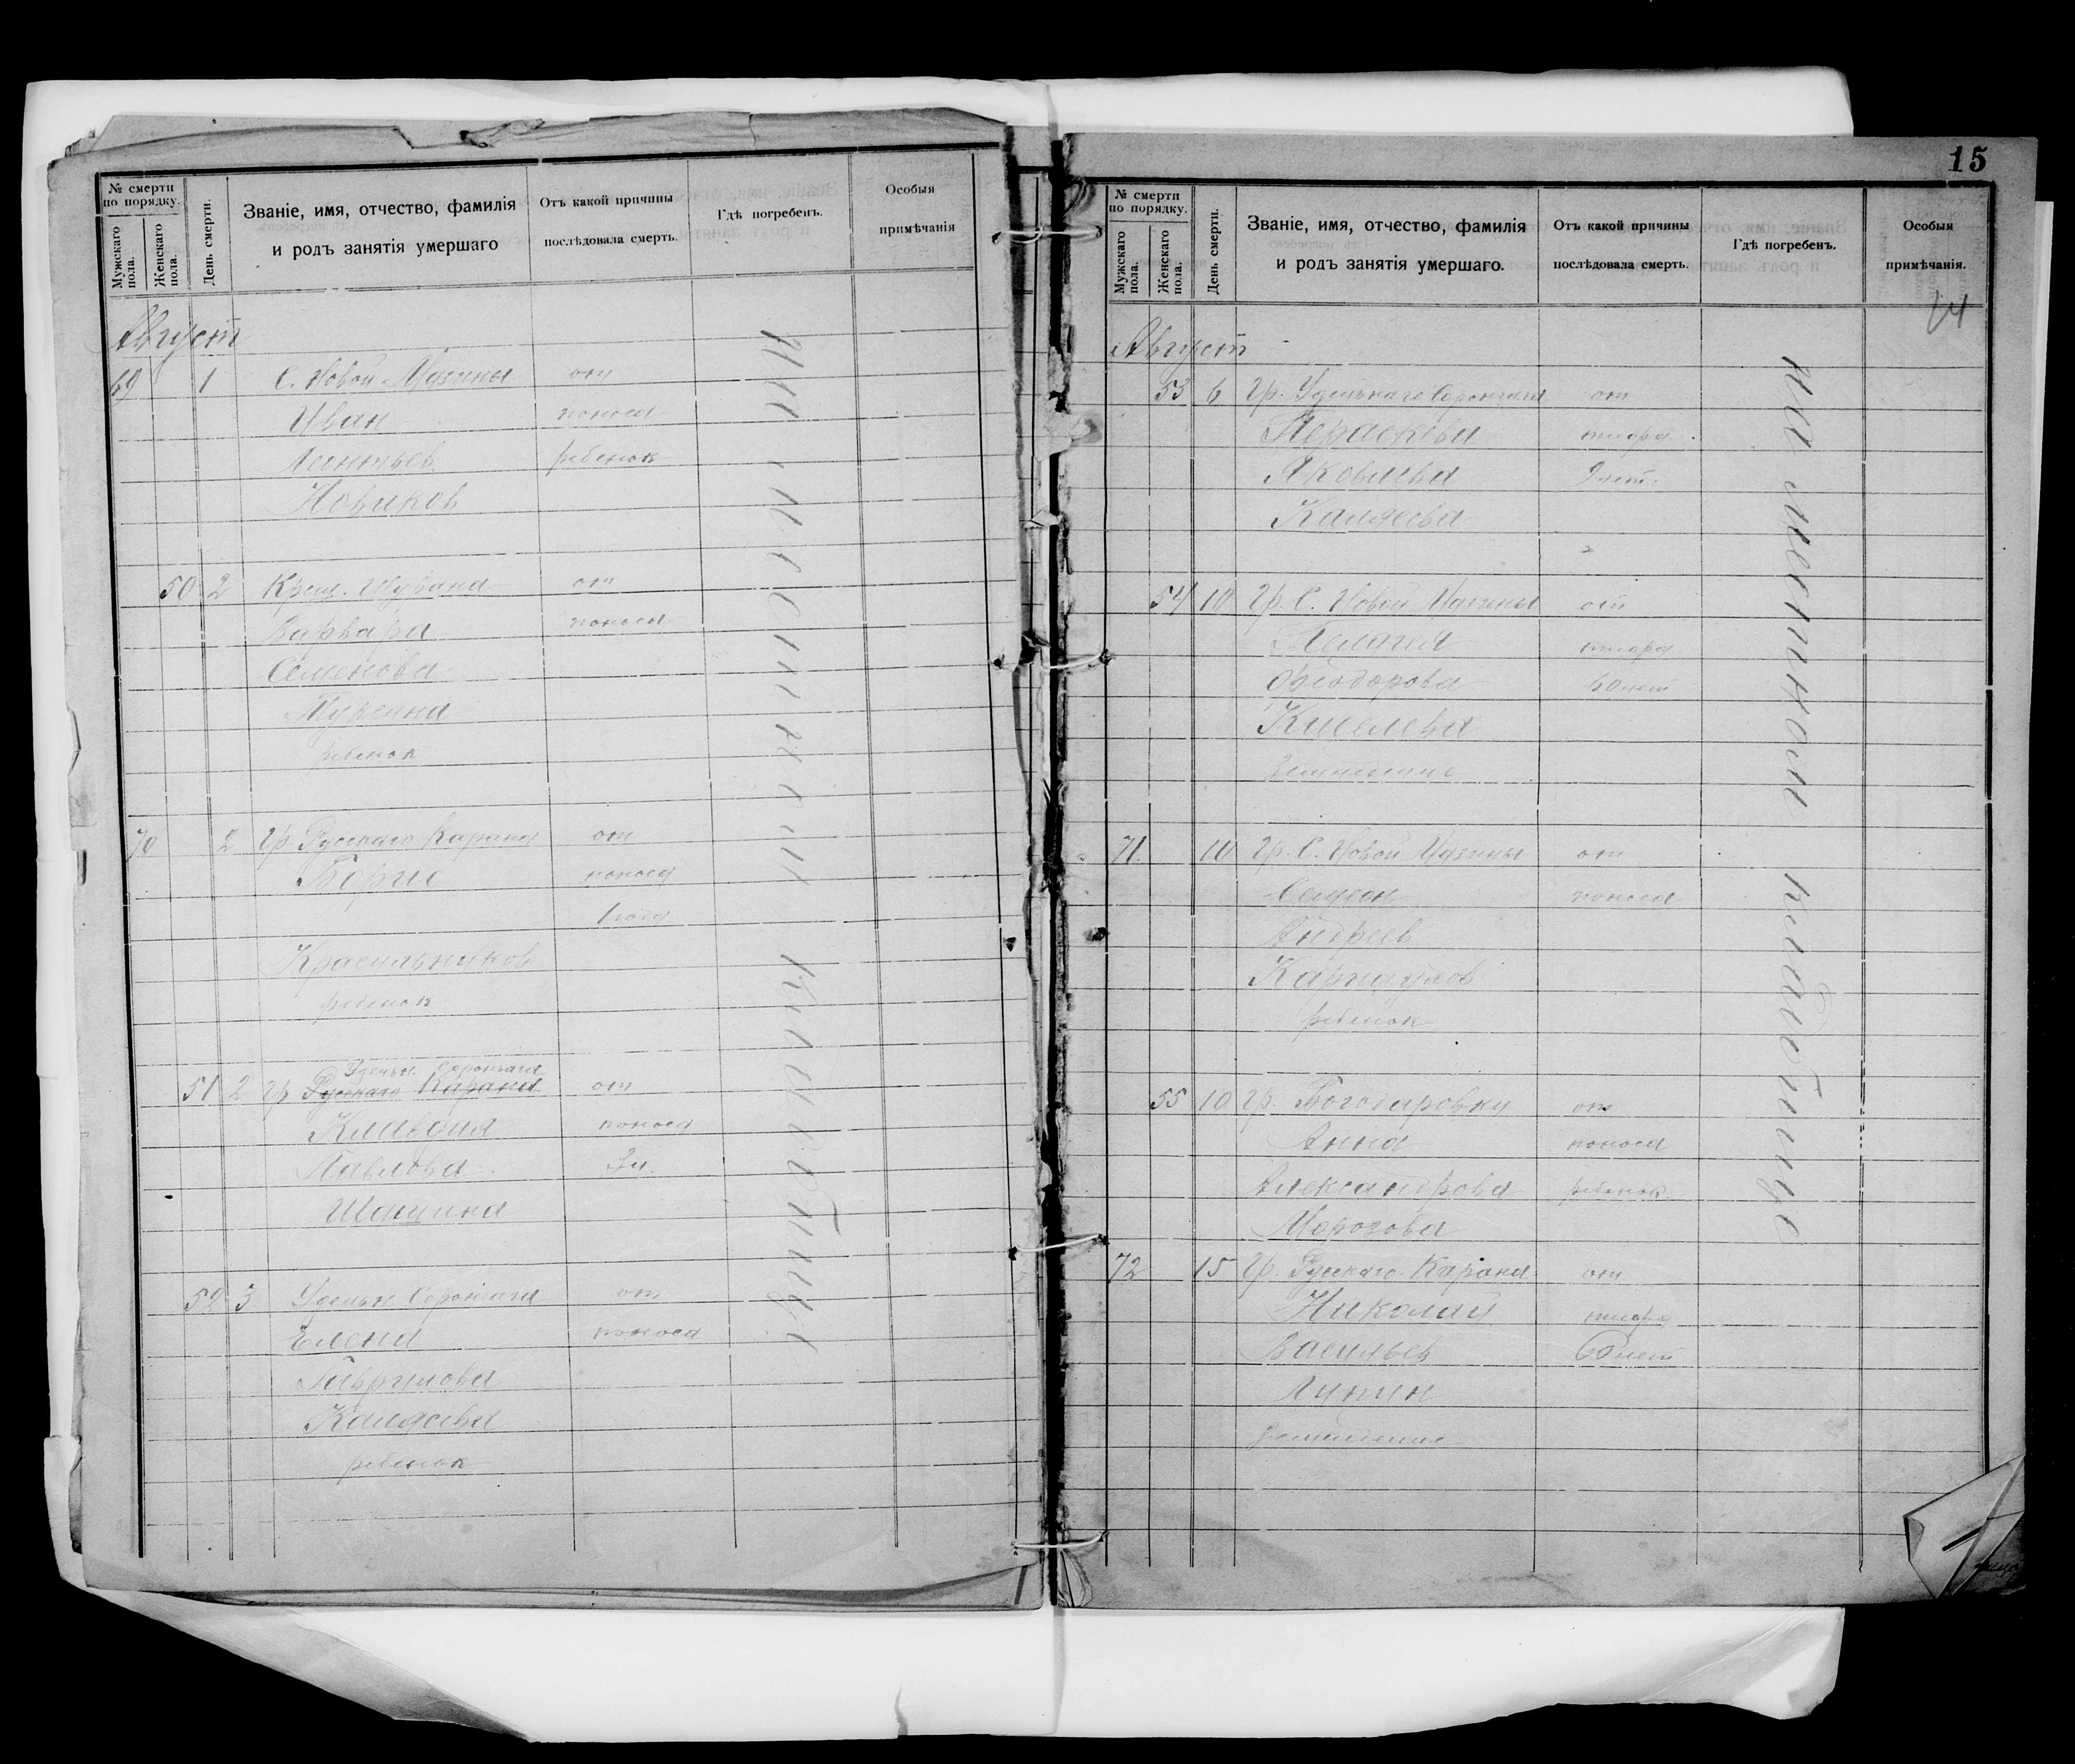 № смерти по порядку.
Мужскаго пола.
Женскаго пола.
День смерти.
Званіе, имя, отчество, фамилія
и родъ занятія умершаго
Отъ какой причины
послѣдовала смерть.
Гдѣ погребенъ.
Особыя
примѣчанія
Август
69 1 С. Новой Мазины от
Иван поноса
Леонтьев ребенок
Новиков
50 2 Крещ. Шурана от
Варвара поноса
Семенова
Мукеина
ребенок
70 2 Гр. Русскаго Карана от
Борис поноса
1 года
Красильников
ребенок
Удельн. Сорончага
51 2 Гр Русскаго Карана от
Клавдия поноса
Павлова 3 л.
Шашина
52 3 Удельн. Сарончага от
Елена поноса
Гаврилова
Каляева
ребенок
На местном кладбище
15
№ смерти
по порядку.
Мужскаго пола.
Женскаго пола.
День смерти.
Званіе, имя, отчество, фамилія
и родъ занятія умершаго.
Отъ какой причины
послѣдовала смерть.
Гдѣ погребенъ.
Особыя
примѣчанія.
14
Август
53 6 Гр. Удельнаго Сорончага от
Параскева тифа
Яковлева 9 лет.
Каляева
54 10 Гр. С. Новой Мазины от
Пелагея тифа
Феодорова 60 лет
Киселева
Земледелие
71. 10 Гр. С. Новой Мазины от
Симеон поноса
Андреев
Карнаухов
ребенок
55 10 Гр. Богодаровки от
Анна поноса
Александрова ребенок
Морозова
72 15 Гр. Русскаго Карана от
Николай тифа
Васильев 60 лет
Лунин
Земледелие
на местном кладбище